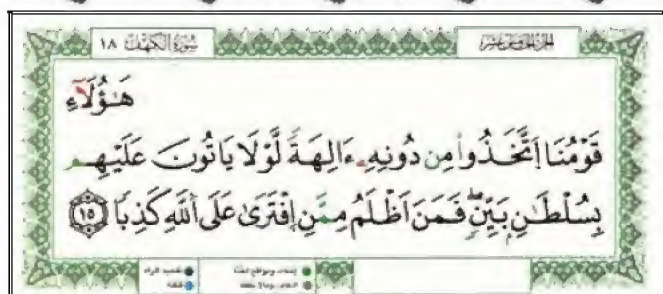 سُورَةُ الْكَهْفِ ١٨
هَٰؤُلَآءِ
قَوْمُنَا اَ۪تَّخَذُواْ مِن دُونِهِۦٓ ءَالِهَةٗ لَّوْلَا يَاتُونَ عَلَيْهِم
بِسُلْطَٰنِۢ بَيِّنٖۖ فَمَنَ اَظْلَمُ مِمَّنِ اِ۪فْتَرَىٰ عَلَى اَ۬للَّهِ كَذِباٗ ١٥